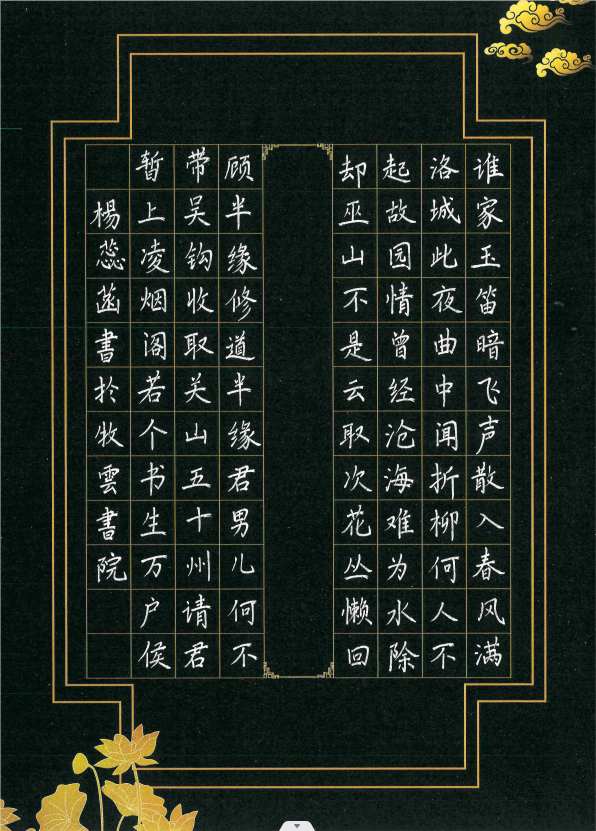 谁家玉笛暗飞声散入春风满
洛城此夜曲中闻折柳何人不
起故园情曾经沧海难为水除
却巫山不是云取次花丛懒回
顾半缘修道半缘君男儿何不
带吴钩收取关山五十州请君
暂上凌烟阁若个书生万户侯
楊蕊菡書於牧雲書院